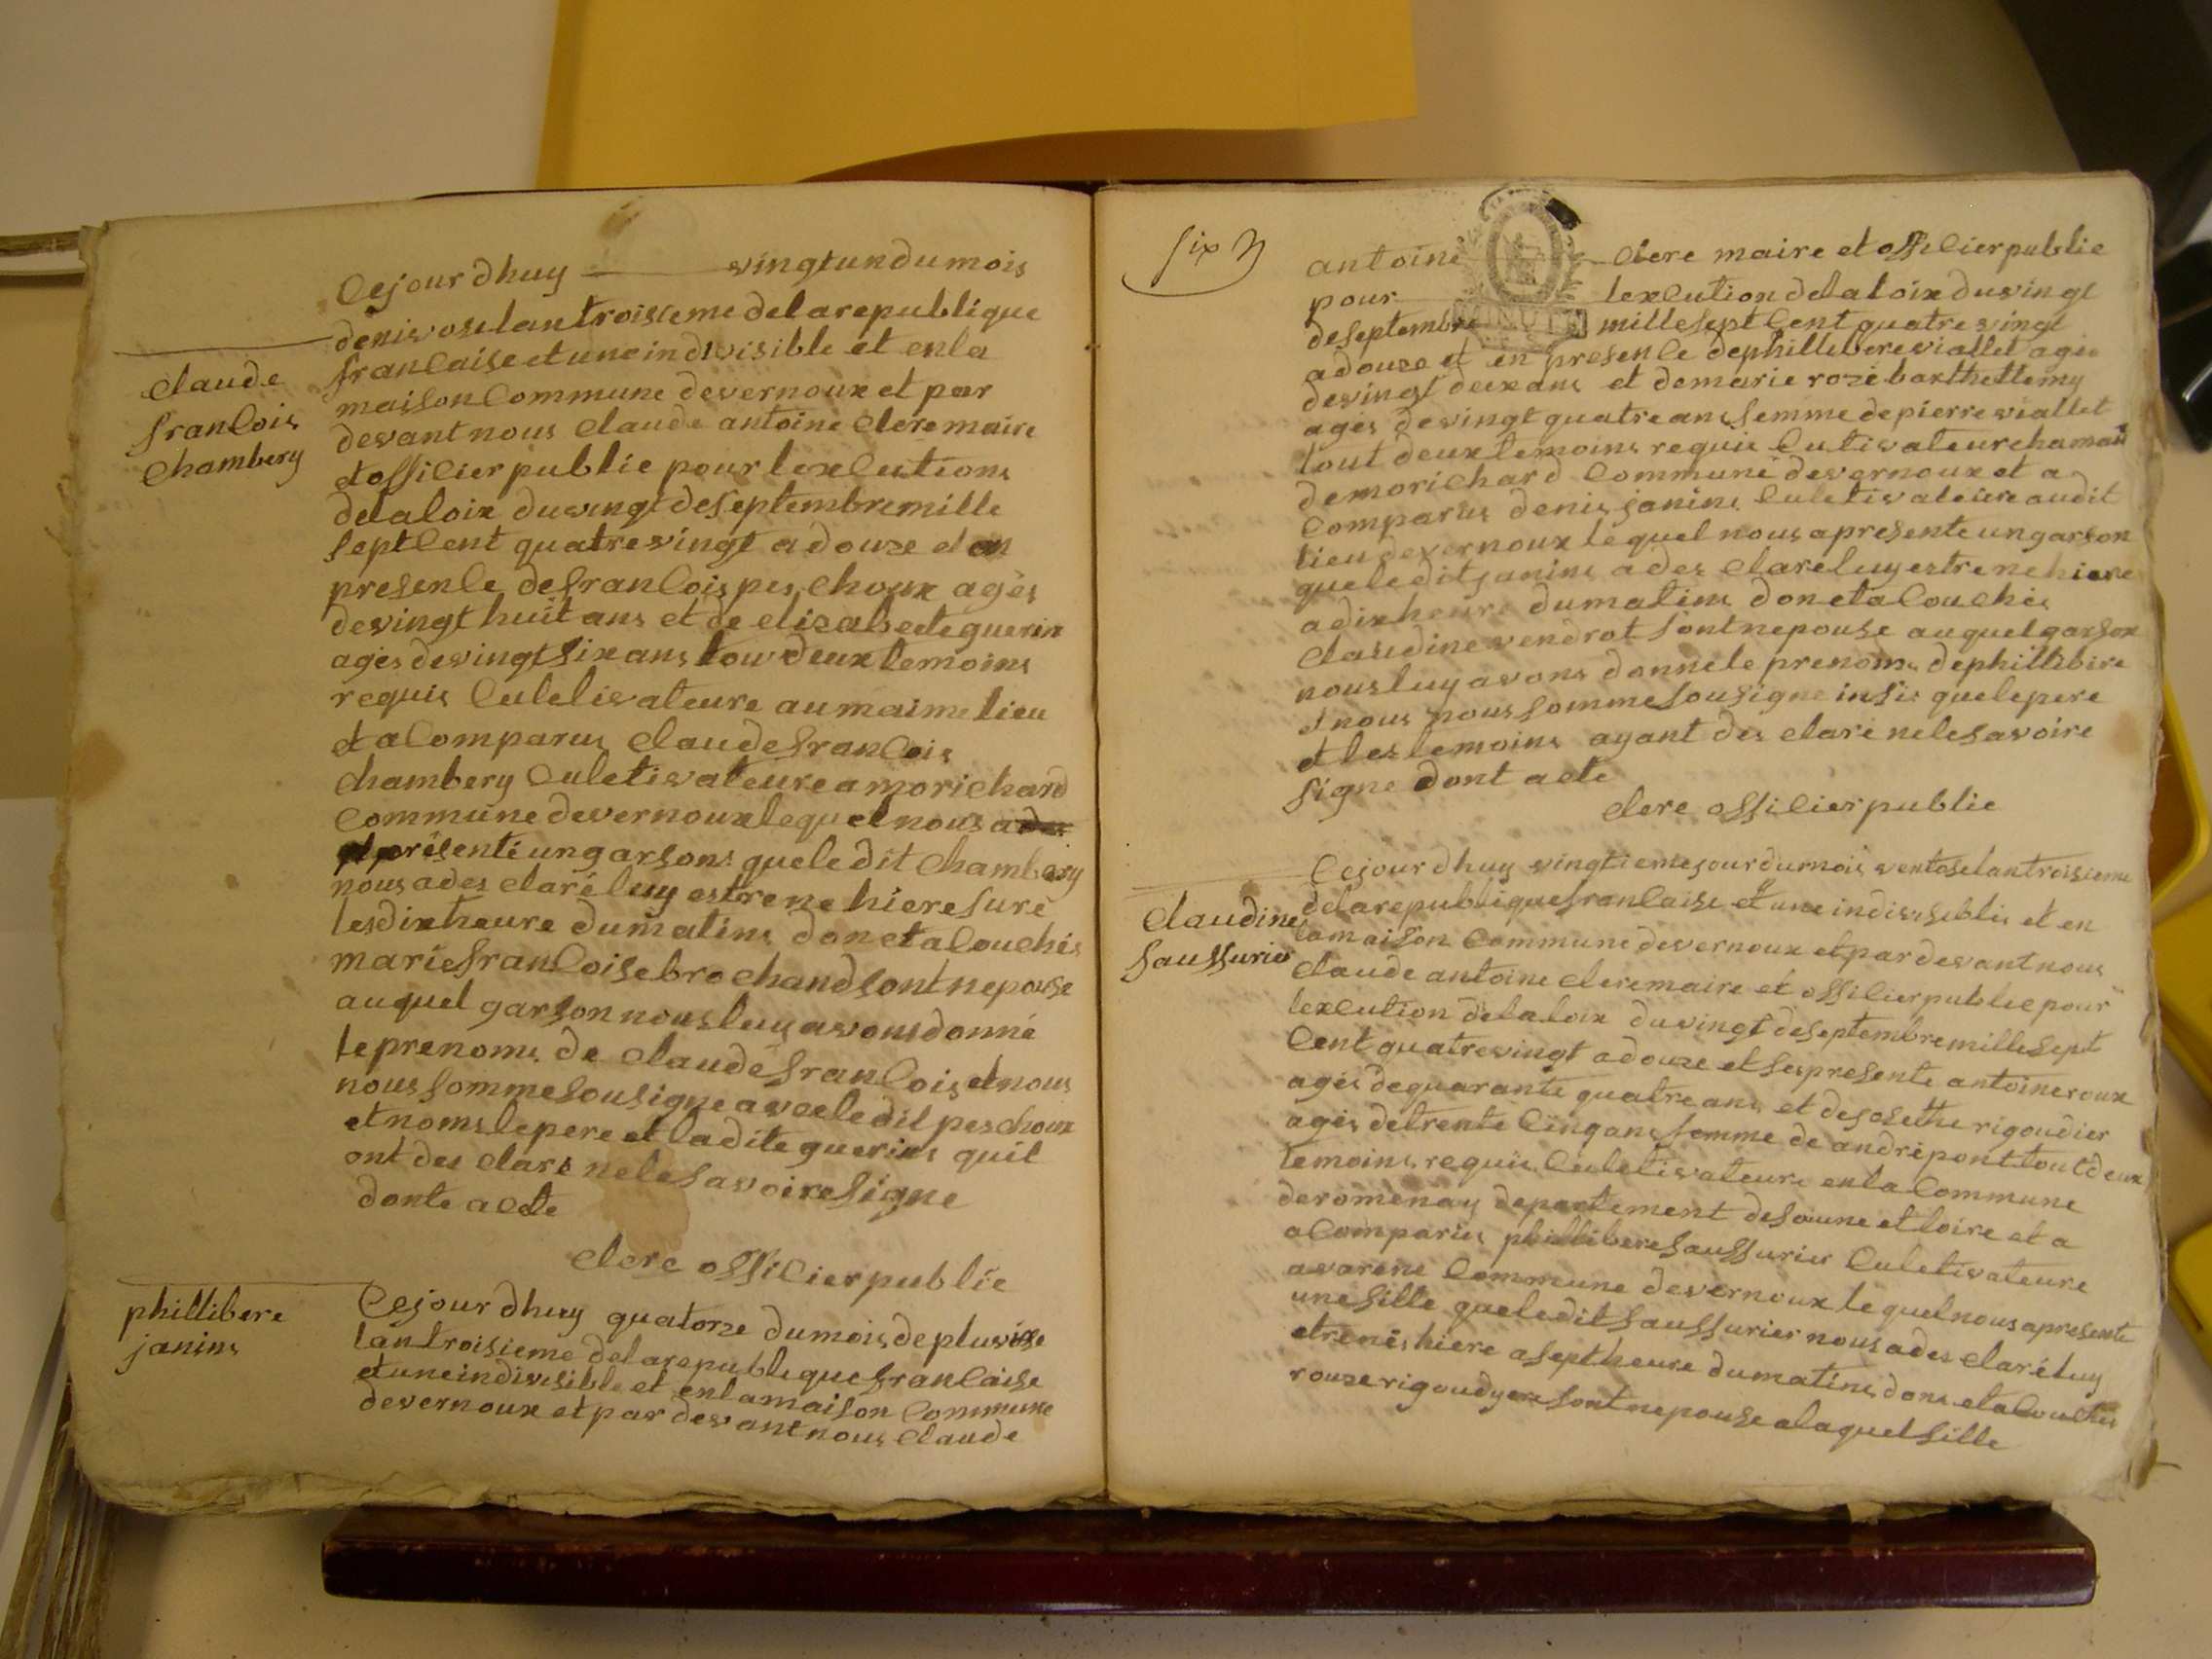 Cejour dhuy vingt un du mois
denivose lan troisieme de la republique
francaise et une indivisible et en la
maison Commune de vernoux et par
devant nous Claude antoine Clere maire
et officier public pour lexcutions
de la loix du vingt de septembre mille
sept Cent quatre vingt adouze et en
presence de francois peschoux agés
de vingt huit ans et de elizabete guerin
agés de vingt six ans tou deux temoins
requis Culetivateure au maime lieu
et a Comparus Claude francois
Chambery Culetivateure a morichard
Commune de vernoux lequel nous a
présenté un garsons que le dit Chambery
nous a des claré luy estre ne hiere sure
les dix heure du matins donet a Couchés
marie francoise brochand sont nepouse
auquel garson nous luy avons donné
le prenoms de Claude francois et nous
nous somme sousigne avec le dit peschoux
et noms le pere et la dite guerins quil
ont des clare ne le savoire signe
donte acte
Clere officier public
Claude
francois
Chambery
phillibere
janins
Cejour dhuy quatorze du mois de pluviose
lan troisieme de la republique francaise
et une indivisible et en la maison Commune
de vernoux et par devant nous Claude
six
antoine Clere maire et officier public
pour lexcution de la loix du vingt
de septembre mille sept Cent quatre vingt
MINUTE
adouze et en presence de phillibere viallet agée
de vingt deux ans et de marie roze barthellemy
agés de vingt quatre ans femme de pierre viallet
tout deux temoins requis Cutivateur
de morichard Commune de vernoux et a
Comparus denis janins Culetivateure audit
lieu de vernoux lequel nous a presente un garson
que le dit janins a des clare luy estre ne hiere
a dix heure du matins donet a Couchés
Claudine vendrot sont nepouse auquel garson
nous luy avons donne le prenoms de phillibire
et nous nous somme sousigne insis que le pere
et les temoins ayant des claré ne le savoire
signe dont acte
Clere officier public
Cejour dhuy vingtieme jour du mois ventose lan troisieme
de la republique francaise et une indivisiblis et en
la maison Commune de vernoux et par devant nous
Claude antoine Clere maire et officier public pour
lexcution de la loix du vingt de septembre mille sept
Cent quatre vingt adouze et ses presente antoine roux
agés de quarante quatre ans et de josethe rigoudier
agés de trente Cinq ans femme de andri pont tout deux
temoins requis Culetivateure en la Commune
de romenay departement de soune et loire et a
a Comparus phillibere saussurier Culetivateure
a varene Commune de vernoux lequel nous a presente
une fille que le dit saussurier nous a des claré luy
etre nés hiere a sept heure du matins dons et a Couchés
rouze rigoudyere sont nepouse a laquel fille
Claudine
saussurier